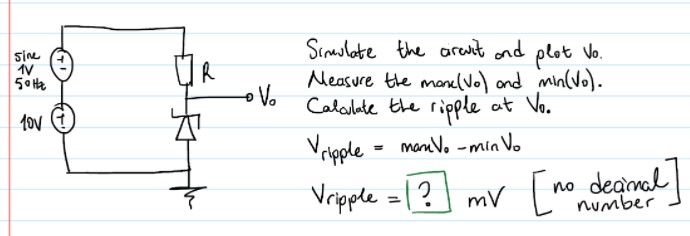 sine
1V
50Hz
10V
R
Vo
Simulate the circuit and plot Vo.
Measure the max(Vo) and min(Vo).
Calculate the ripple at Vo.
Vripple = maxVo - minVo
Vripple = ? mV [no decimal number]